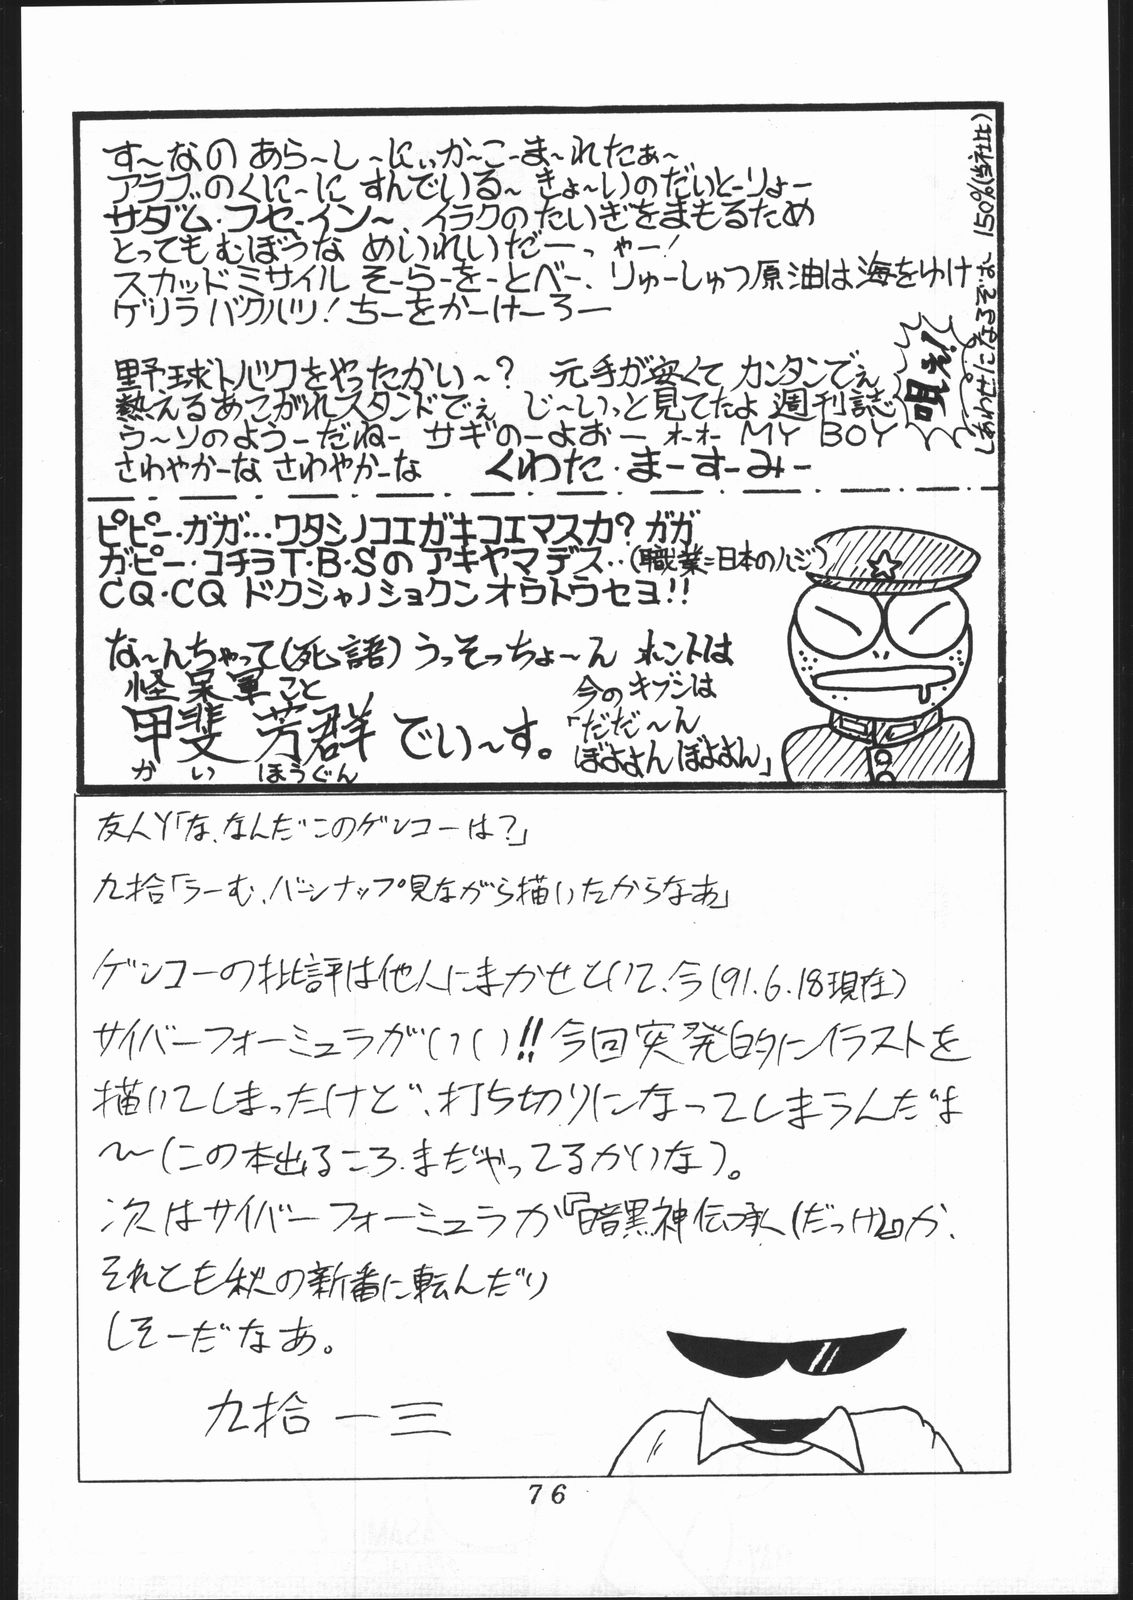 す〜なの あら〜し〜にぃか〜こ-ま〜れたぁ〜
アラブのくに〜に すんでいる〜 きょ〜いのだいと-りょー
サダム・フセ-イン〜 イラクのたいぎをまもるため
とってもむぼうな めいれいだーっゃー!
スカッドミサイル そーらーをーとべー、りゅーしゅつ原油は海をゆけ
ゲリラバクハツ!ちーをかーけーろー
野球トバクをやったかい〜? 元手が安くて カンタンでぇ
熱えるあこがれスタンドでぇ じ〜いっと見てたよ 週刊誌
う〜ソのようーだねー サギのーよおー オーオー MY BOY
さわやかーな さわやかーな くわた・まーすーみー
唄え!
150%(当社比)
ピピー・ガガ…ワタシノコエガキコエマスカ?ガガ
ガ・ピー・コチラT・B・Sの アキヤマデス‥(職業=日本のハジ)
CQ・CQ ドクシャノショクンオウトウセヨ!!
な〜んちゃって(死語)うっそっちょ〜ん ホントは
怪呆軍こと
甲斐 芳群でい〜す。
かい ほうぐん
今のキブンは
「だだ〜ん
ぼよよんぼよよん」
友人Y「な、なんだこのゲンコーは?」
九拾「うーむ、バーンナップ見ながら描いたからなあ」
ゲンコーの批評は他人にまかせといて、今(91.6.18現在)
サイバーフォーミュラがいい!!今回突発的にイラストを
描いてしまったけど、打ち切りになってしまうんだよ
〜(この本出るころ、まだやってるかいな)。
次はサイバーフォーミュラか『暗黒神伝承(だっけ)』か、
それとも秋の新番に転んだり
しそーだなあ。
九拾 一三
76